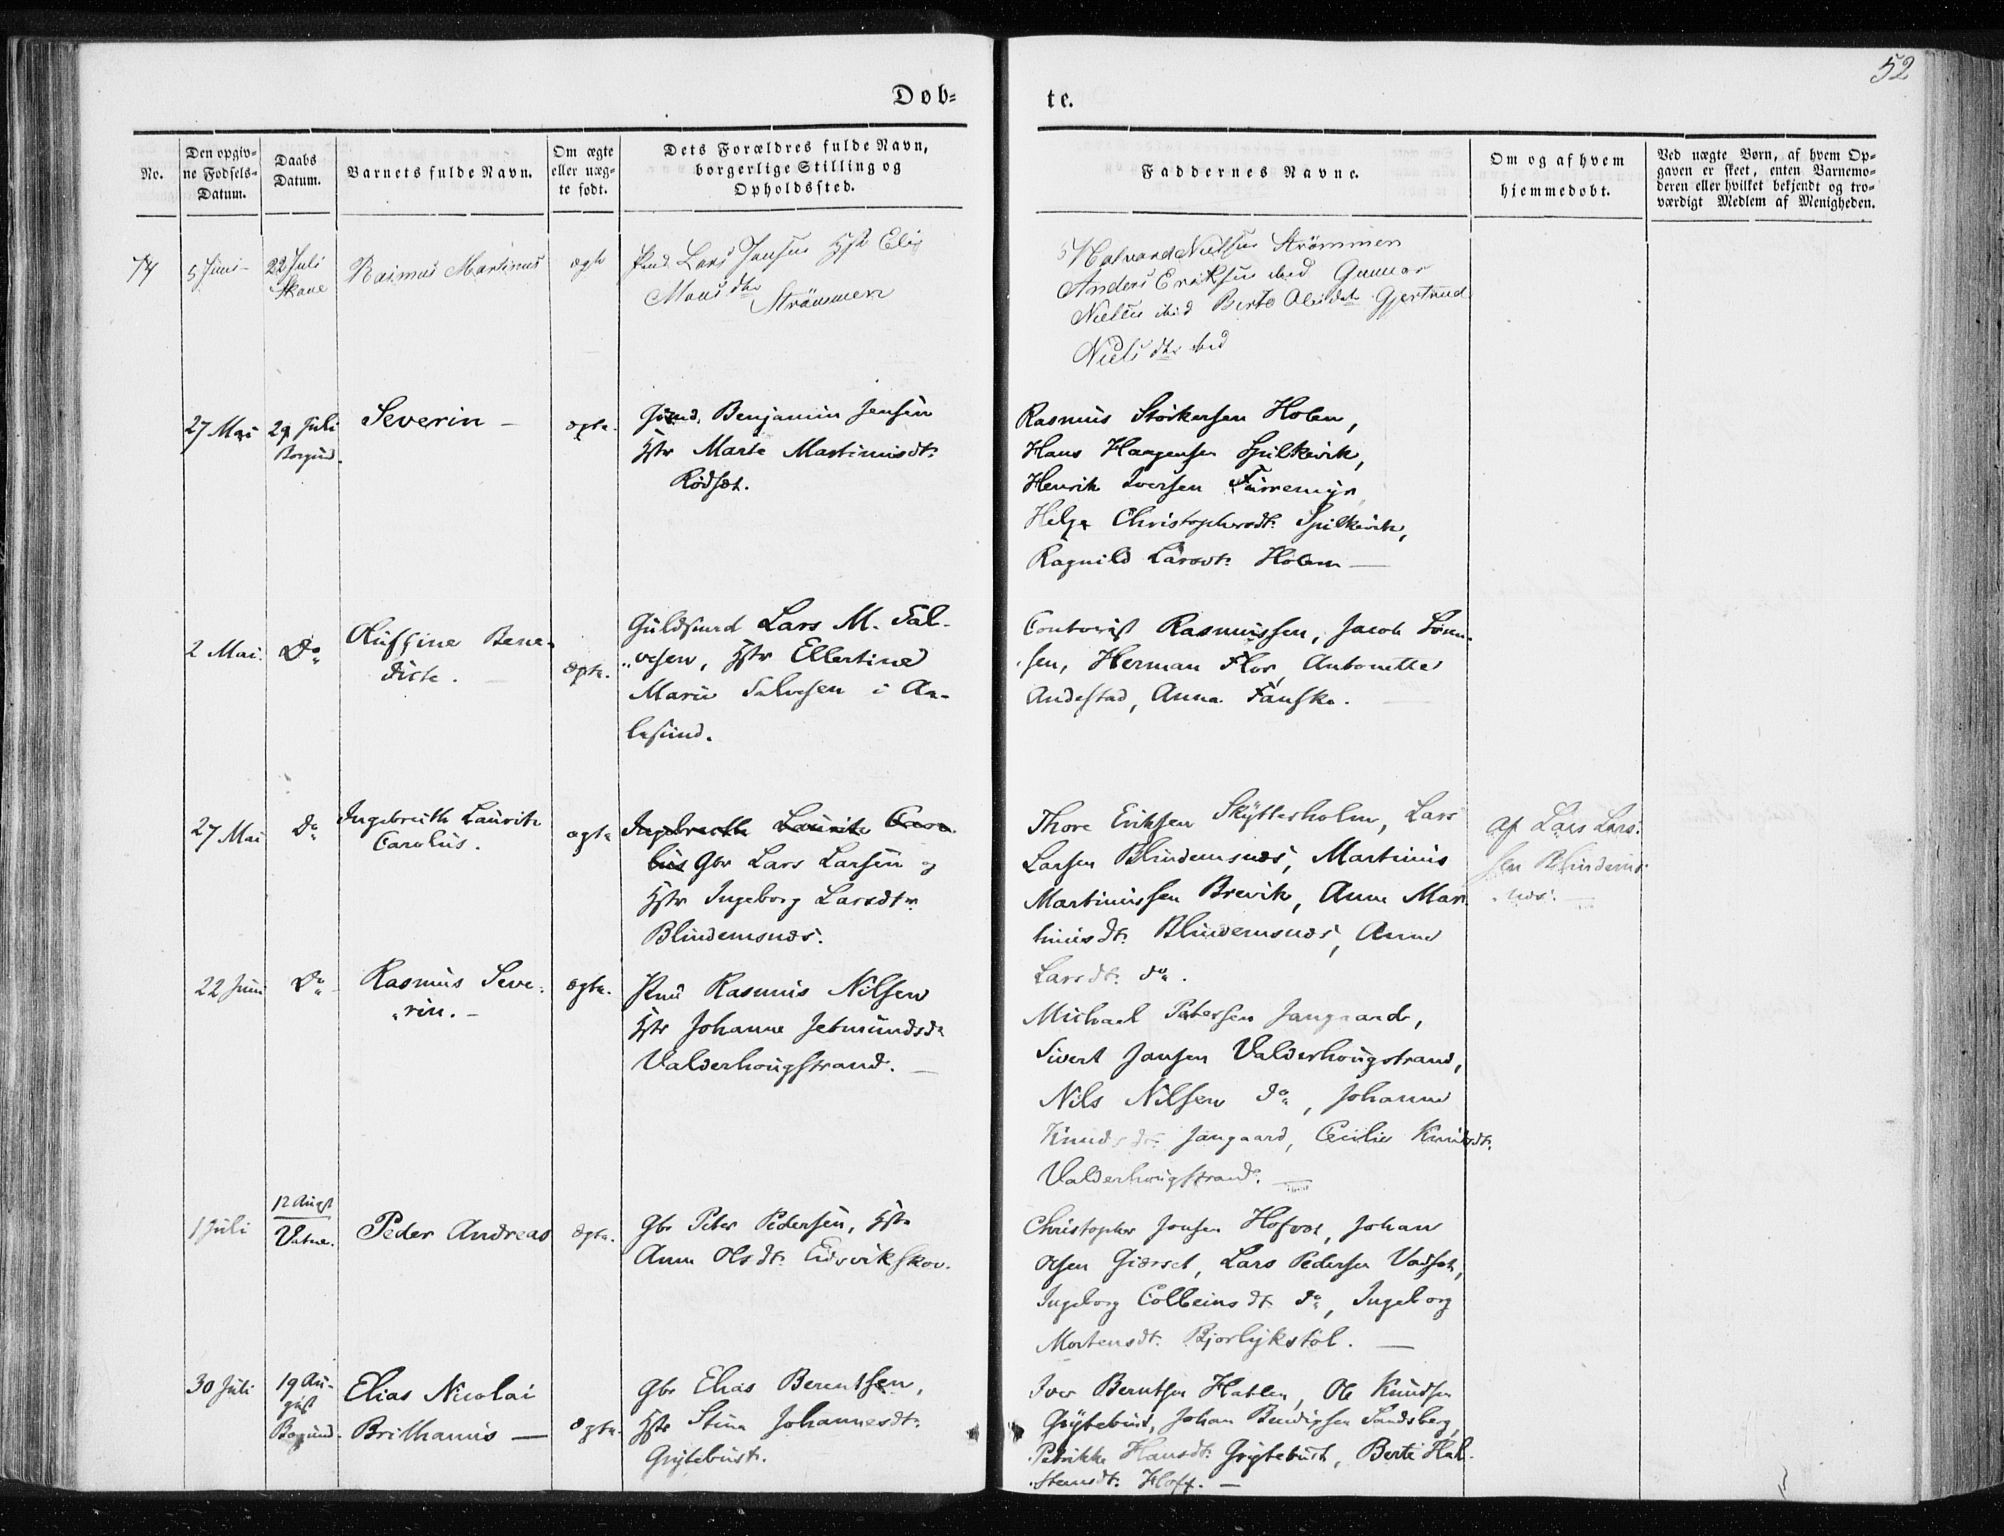 52
Døb=
te.
No.
Den opgiv=
ne Fødsels=
Datum.
Daabs
Datum.
Barnets fulde Navn.
Om ægte
eller uæg=
te født.
Dets Forældres fulde Navn,
borgerlige Stilling og
Opholdssted.
Faddernes Navne.
Om og af hvem
hjemmedøbt.
Ved uægte Børn, af hvem Op=
gaven er skeet, enten Barnemo=
deren eller hvilket bekjendt og tro=
værdigt Medlem af Menigheden.
74
5 Juni
22 Juli
Rasmus Martinus
ægte
Lars Jensen Hstr Elis
Mons dtr
Strømmen
Nielsen Strømmen
Anders Eriksen ibid Gunnar
Nielsen ibid Berte Olesdtr Gjertrud
Niels dtr ibid
27 Mai
29 Juli
Borgund.
Severin —
ægte.
Benjamin Jensen
Hstr Marte Martinusdt.
Rødset.
Rasmus Storkersen Holen,
Hans Haagensen Spilkevik,
Henrik Iversen Furremyr,
Helge Christophersdt. Spilkevik,
Ragnild Larsdt. Holen —
2 Mai.
Do
Oluffine Bene-
dicte. —
ægte.
Guldsmed Lars M. Sal-
vesen, Hstr Ellertine
Marie Salvesen i Aa-
lesund.
Contorist Rasmussen, Jacob
sen, Herman Flor, Antonette
Andestad, Anna Fauske. —
27 Mai
Do
Ingebreith Laurits
Carolus.
ægte
Ingebreith Laurits Caro-
lus Gbr Lars Larsen og
Hstr Ingeborg Larsdtr.
Blindemsnæs.
Thore Eriksen Skytterholm, Lars
Larsen Blindemsnæs, Martinus
Martinussen Brevik, Anne Mar-
tinusdt. Blindemsnæs, Anne
Larsdt. do.
Af Lars Lars-
sen Blindems-
næs. —
22 Juni
Do
Rasmus Seve-
rin. —
ægte.
Rasmus Nilsen
Hstr Johanne Jetmundsdt
Valderhougstrand. —
Michael Petersen Jangaard,
Sivert Jansen Valderhougstrand,
Nils Nilsen do, Johanne
Knudsdt. Jangaard, Cecilie Knudsdt.
Valderhougstrand. —
1 Juli
12 Augst
Vatne.
Peder Andreas
ægte.
Gbr Peter Pedersen, Hstr
Anne Olsdt. Eidsvikskov.
Christopher Jonsen Hofset, Johan
Olsen Giærset, Lars Pedersen Vadset,
Ingeborg Colbeinsdt. do, Ingeborg
Mortensdt. Bjorlykstøl. —
30 Juli
19 Au-
gust
Borgund
Elias Nicolai
Brithanus —
ægte.
Gbr Elias Berentsen,
Hstr Stina Johannesdt.
Grytebust.
Iver Berntsen Hatlen, Ole Knudsen
Grytebust, Johan Bendigsen Sandsberg,
Petrikke Hansdt. Grytebust, Berte Hal-
steinsdt. Hoff. —